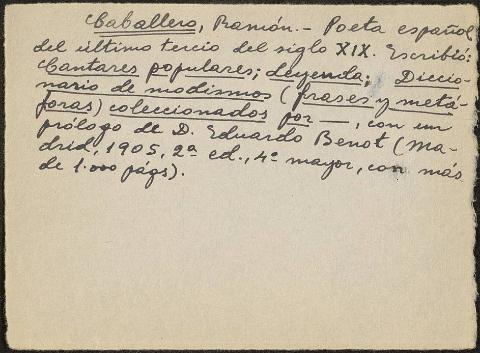 Caballero, Ramón.- Poeta español
del último tercio del siglo XIX. Escribió:
Cantares populares; Leyenda; Diccio-
nario de modismos (frases y metá-
foras) coleccionados por —, con un
prólogo de D. Eduardo Benot (Ma-
drid, 1905, 2ª ed., 4º mayor, con más
de 1.000 págs).